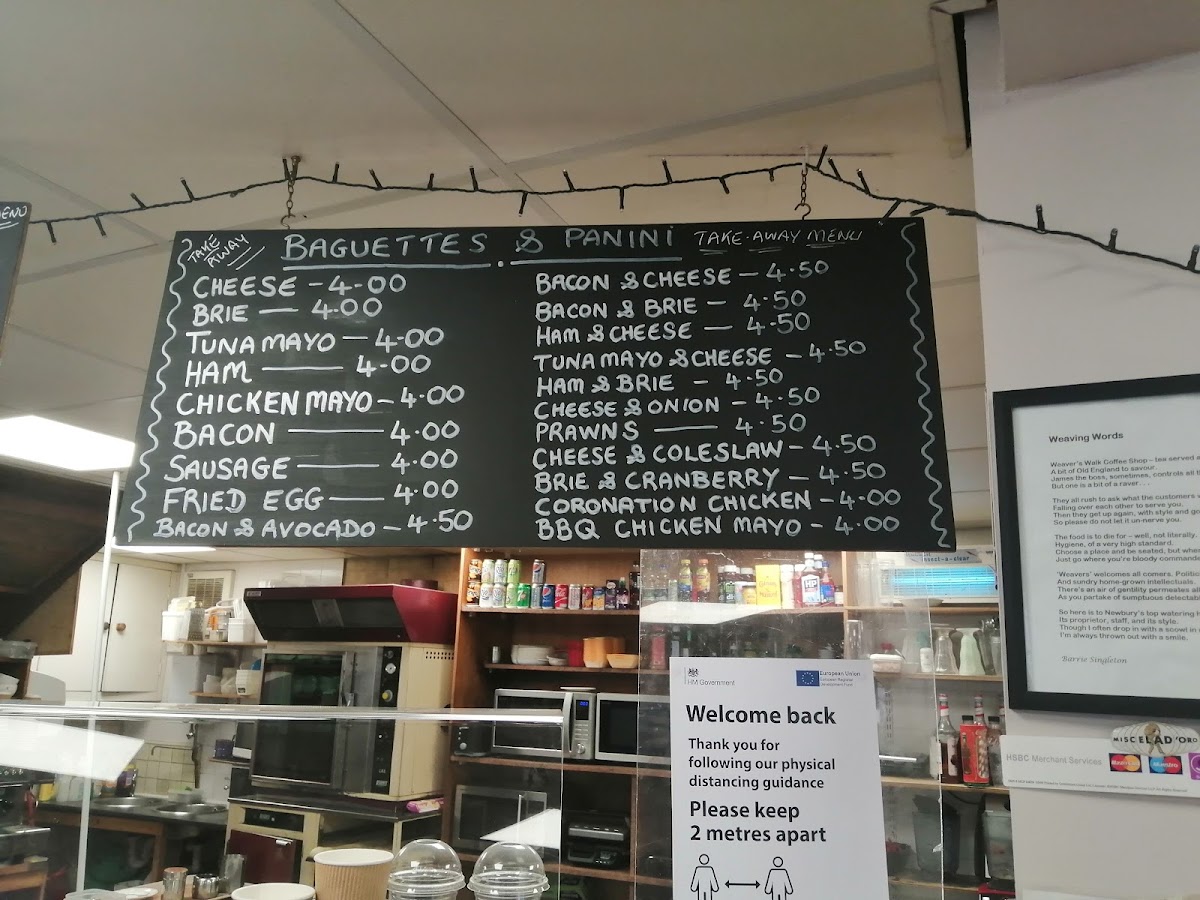 MENU
TAKE AWAY
BAGUETTES & PANINI TAKE-AWAY MENU
CHEESE - 4-00
BRIE — 4-00
TUNA MAYO — 4-00
HAM — 4-00
CHICKEN MAYO - 4.00
BACON — 4.00
SAUSAGE — 4.00
FRIED EGG — 4.00
BACON & AVOCADO - 4.50
BACON & CHEESE - 4.50
BACON & BRIE - 4.50
HAM & CHEESE - 4.50
TUNA MAYO & CHEESE - 4.50
HAM & BRIE - 4.50
CHEESE & ONION - 4.50
PRAWNS — 4.50
CHEESE & COLESLAW - 4.50
BRIE & CRANBERRY - 4.50
CORONATION CHICKEN - 4.00
BBQ CHICKEN MAYO - 4.00
Weaving Words
Weaver's Walk Coffee Shop – tea served a
A bit of Old England to savour.
James the boss, sometimes, controls all t
But one is a bit of a raver. . .
They all rush to ask what the customers
Falling over each other to serve you.
Then they get up again, with style and
So please do not let it un-nerve you.
The food is to die for – well, not literally,
Hygiene, of a very high standard.
Choose a place and be seated, but
Just go where you're blowdy commande
'Weavers' welcomes all comers.
And sundry home-grown intellectuals.
There's an air of gentility permeates all
As you partake of sumptuous delectab
So here is to Newbury's top watering
Its proprietor, staff, and its style.
Though I often drop in with a scowl
I'm always thrown out with a smile.
Barrie Singleton
HM Government
European Union
European Regional
Development Fund
Welcome back
Thank you for
following our physical
distancing guidance
Please keep
2 metres apart
insect-a-clear
HP
MISCELA D'ORO
HSBC Merchant Services
MasterCard
Maestro